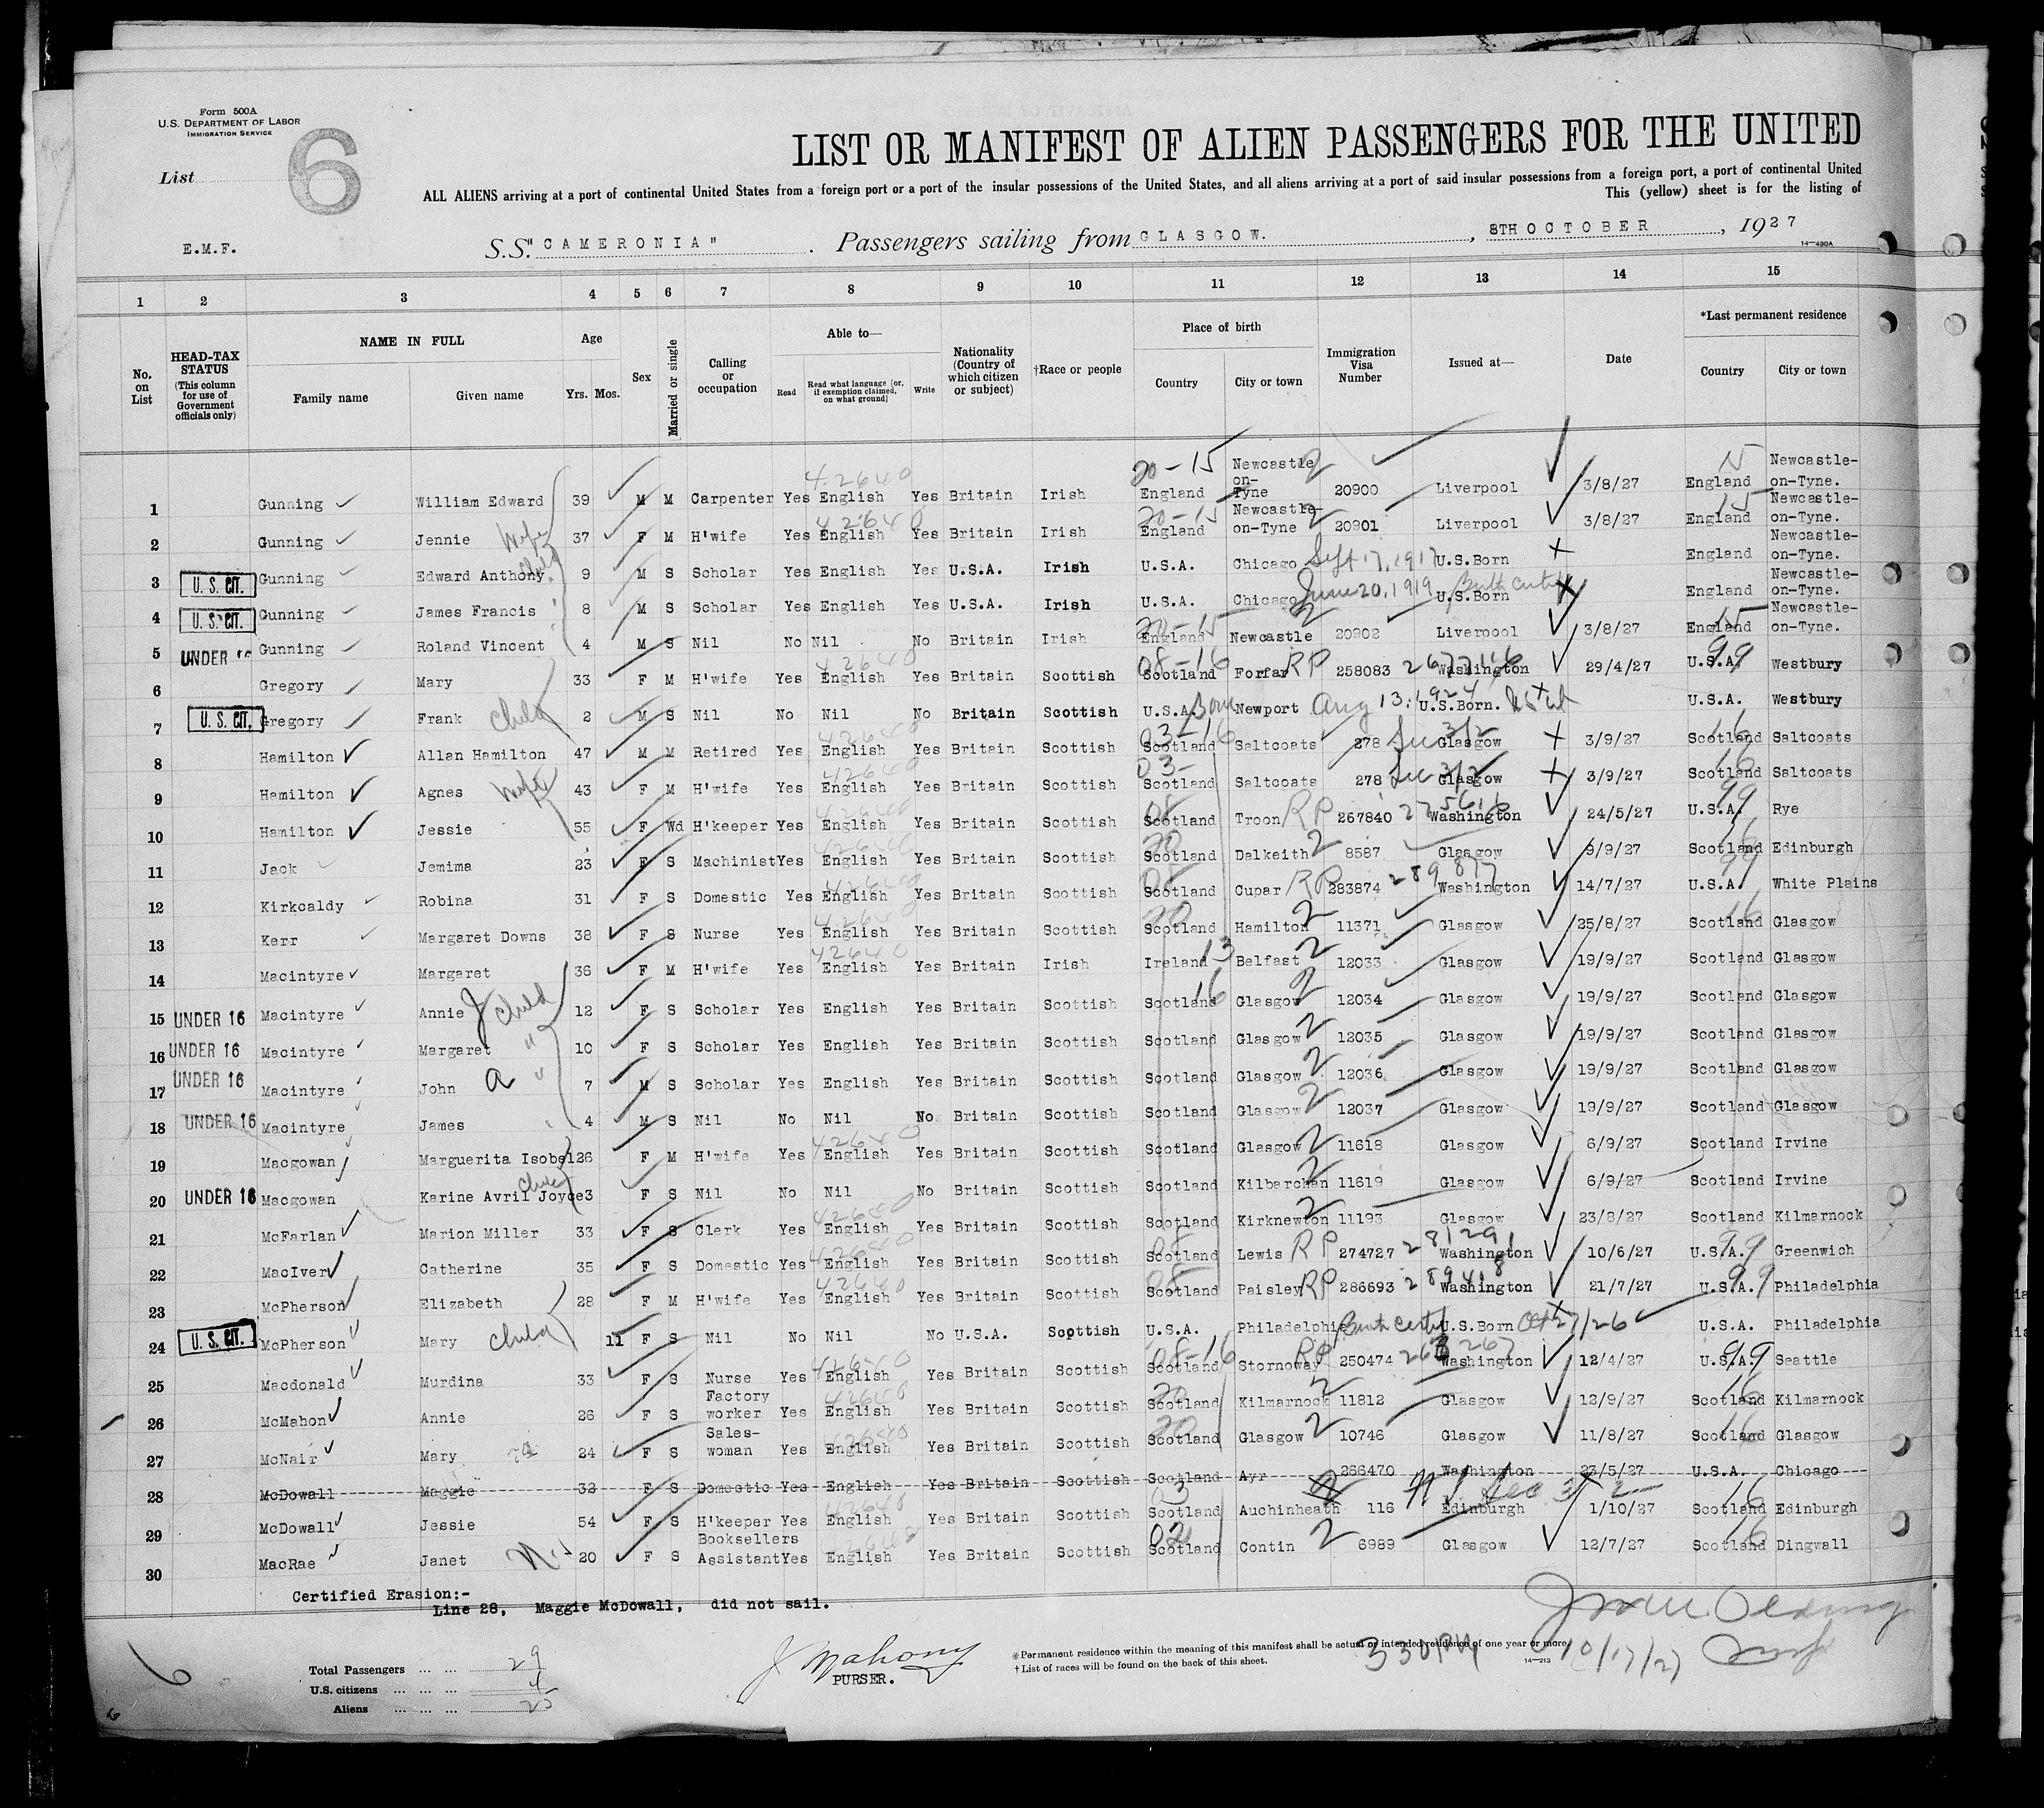 Form 500A
U.S. DEPARTMENT OF LABOR
IMMIGRATION SERVICE
List 6
LIST OR MANIFEST OF ALIEN PASSENGERS FOR THE UNITED
ALL ALIENS arriving at a port of continental United States from a foreign port or a port of the insular possessions of the United States, and all aliens arriving at a port of said insular possessions from a foreign port, a port of continental United
This (yellow) sheet is for the listing of
E.M.F. S.S. "CAMERONIA" . Passengers sailing from GLASGOW. , 8TH OCTOBER , 1927
14—430A
1 2 3 4 5 6 7 8 9 10 11 12 13 14 15
No. on List
HEAD-TAX STATUS (This column for use of Government officials only)
NAME IN FULL
Family name Given name
Age
Yrs. Mos.
Sex
Married or single
Calling or occupation
Able to—
Read Read what language [or, if exemption claimed, on what ground] Write
Nationality (Country of which citizen or subject)
†Race or people
Place of birth
Country City or town
Immigration Visa Number
Issued at—
Date
*Last permanent residence
Country City or town
1 Gunning William Edward 39 M M Carpenter Yes English 42640 Yes Britain Irish 20-15 England Newcastle-on-Tyne 2 20900 Liverpool 3/8/27 England 15 Newcastle-on-Tyne.
2 Gunning Jennie Wife 37 F M H'wife Yes English 42640 Yes Britain Irish 20-15 England Newcastle-on-Tyne 2 20901 Liverpool 3/8/27 England 15 Newcastle-on-Tyne.
3 U.S. CIT. Gunning Edward Anthony. Child 9 M S Scholar Yes English Yes U.S.A. Irish U.S.A. Chicago Sept 17, 1917 U.S.Born England Newcastle-on-Tyne.
4 U.S. CIT. Gunning James Francis 8 M S Scholar Yes English Yes U.S.A. Irish U.S.A. Chicago June 20, 1919 U.S.Born Birth Certif England Newcastle-on-Tyne.
5 UNDER 16 Gunning Roland Vincent 4 M S Nil No Nil No Britain Irish 20-15 England Newcastle 2 20902 Liverpool 3/8/27 England 15 Newcastle-on-Tyne.
6 Gregory Mary 33 F M H'wife Yes English 42640 Yes Britain Scottish 08-16 Scotland Forfar RP 258083 Washington 29/4/27 U.S.A. 99 Westbury
7 U.S. CIT. Gregory Frank Child 2 M S Nil No Nil No Britain Scottish U.S.A. Born Newport Aug 13, 1924 U.S.Born. U.S. Cit U.S.A. Westbury
8 Hamilton Allan Hamilton 47 M M Retired Yes English 42640 Yes Britain Scottish 03-16 Scotland Saltcoats 278 Sec 3/2 Glasgow 3/9/27 Scotland 16 Saltcoats
9 Hamilton Agnes Wife 43 F M H'wife Yes English 42640 Yes Britain Scottish 03- Scotland Saltcoats 278 Sec 3/2 Glasgow 3/9/27 Scotland 16 Saltcoats
10 Hamilton Jessie 55 F Wd H'keeper Yes English 42640 Yes Britain Scottish 08 Scotland Troon RP 267840 Washington 24/5/27 U.S.A. 99 Rye
11 Jack Jemima 23 F S Machinist Yes English 42640 Yes Britain Scottish 20 Scotland Dalkeith 2 8587 Glasgow 9/9/27 Scotland 16 Edinburgh
12 Kirkcaldy Robina 31 F S Domestic Yes English 42640 Yes Britain Scottish 08 Scotland Cupar RP 283874 289877 Washington 14/7/27 U.S.A. 99 White Plains
13 Kerr Margaret Downs 38 F S Nurse Yes English 42640 Yes Britain Scottish 20 Scotland Hamilton 2 11371 Glasgow 25/8/27 Scotland 16 Glasgow
14 Macintyre Margaret 36 F M H'wife Yes English 42640 Yes Britain Irish Ireland 13 Belfast 2 12033 Glasgow 19/9/27 Scotland Glasgow
15 UNDER 16 Macintyre Annie J Child 12 F S Scholar Yes English Yes Britain Scottish Scotland 16 Glasgow 2 12034 Glasgow 19/9/27 Scotland Glasgow
16 UNDER 16 Macintyre Margaret " 10 F S Scholar Yes English Yes Britain Scottish Scotland Glasgow 2 12035 Glasgow 19/9/27 Scotland Glasgow
17 UNDER 16 Macintyre John a " 7 M S Scholar Yes English Yes Britain Scottish Scotland Glasgow 2 12036 Glasgow 19/9/27 Scotland Glasgow
18 UNDER 16 Macintyre James 4 M S Nil No Nil No Britain Scottish Scotland Glasgow 2 12037 Glasgow 19/9/27 Scotland Glasgow
19 Macgowan Marguerita Isobel 26 F M H'wife Yes English 42640 Yes Britain Scottish Scotland Glasgow 2 11618 Glasgow 6/9/27 Scotland Irvine
20 UNDER 16 Macgowan Karine Avril Joyce Child 3 F S Nil No Nil No Britain Scottish Scotland Kilbarchan 2 11619 Glasgow 6/9/27 Scotland Irvine
21 McFarlan Marion Miller 33 F S Clerk Yes English 42640 Yes Britain Scottish Scotland Kirknewton 2 11193 Glasgow 23/8/27 Scotland Kilmarnock
22 MacIver Catherine 35 F S Domestic Yes English 42640 Yes Britain Scottish 08 Scotland Lewis RP 274727 281291 Washington 10/6/27 U.S.A. 99 Greenwich
23 McPherson Elizabeth 28 F M H'wife Yes English 42640 Yes Britain Scottish 08 Scotland Paisley RP 286693 289418 Washington 21/7/27 U.S.A. 99 Philadelphia
24 U.S. CIT. McPherson Mary Child 11 F S Nil No Nil No U.S.A. Scottish U.S.A. Philadelphia Birth Certif U.S.Born Oct 27/26 U.S.A. Philadelphia
25 Macdonald Murdina 33 F S Nurse Yes English 42640 Yes Britain Scottish 08-16 Scotland Stornoway RP 250474 Washington 12/4/27 U.S.A. 99 Seattle
26 McMahon Annie 26 F S Factory worker Yes English 42640 Yes Britain Scottish 20 Scotland Kilmarnock 2 11812 Glasgow 12/9/27 Scotland 16 Kilmarnock
27 McNair Mary 24 F S Sales-woman Yes English 42640 Yes Britain Scottish 20 Scotland Glasgow 2 10746 Glasgow 11/8/27 Scotland 16 Glasgow
28 McDowall Maggie 32 F S Domestic Yes English Yes Britain Scottish Scotland Ayr 266470 Washington 23/5/27 U.S.A. Chicago
29 McDowall Jessie 54 F S H'keeper Yes English 42640 Yes Britain Scottish 03 Scotland Auchinheath 116 Sec 3/2 Edinburgh 1/10/27 Scotland 16 Edinburgh
30 MacRae Janet 20 F S Booksellers Assistant Yes English 42640 Yes Britain Scottish Scotland Contin 2 6989 Glasgow 12/7/27 Scotland 16 Dingwall
Certified Erasion:-
Line 28, Maggie McDowall, did not sail.
Total Passengers ... ... 29
U.S. citizens ... ... ... 4
Aliens ... ... ... 25
J Mahony
PURSER.
*Permanent residence within the meaning of this manifest shall be actual or intended residence of one year or more.
†List of races will be found on the back of this sheet.
14—213
330 PM
10/17/27
6